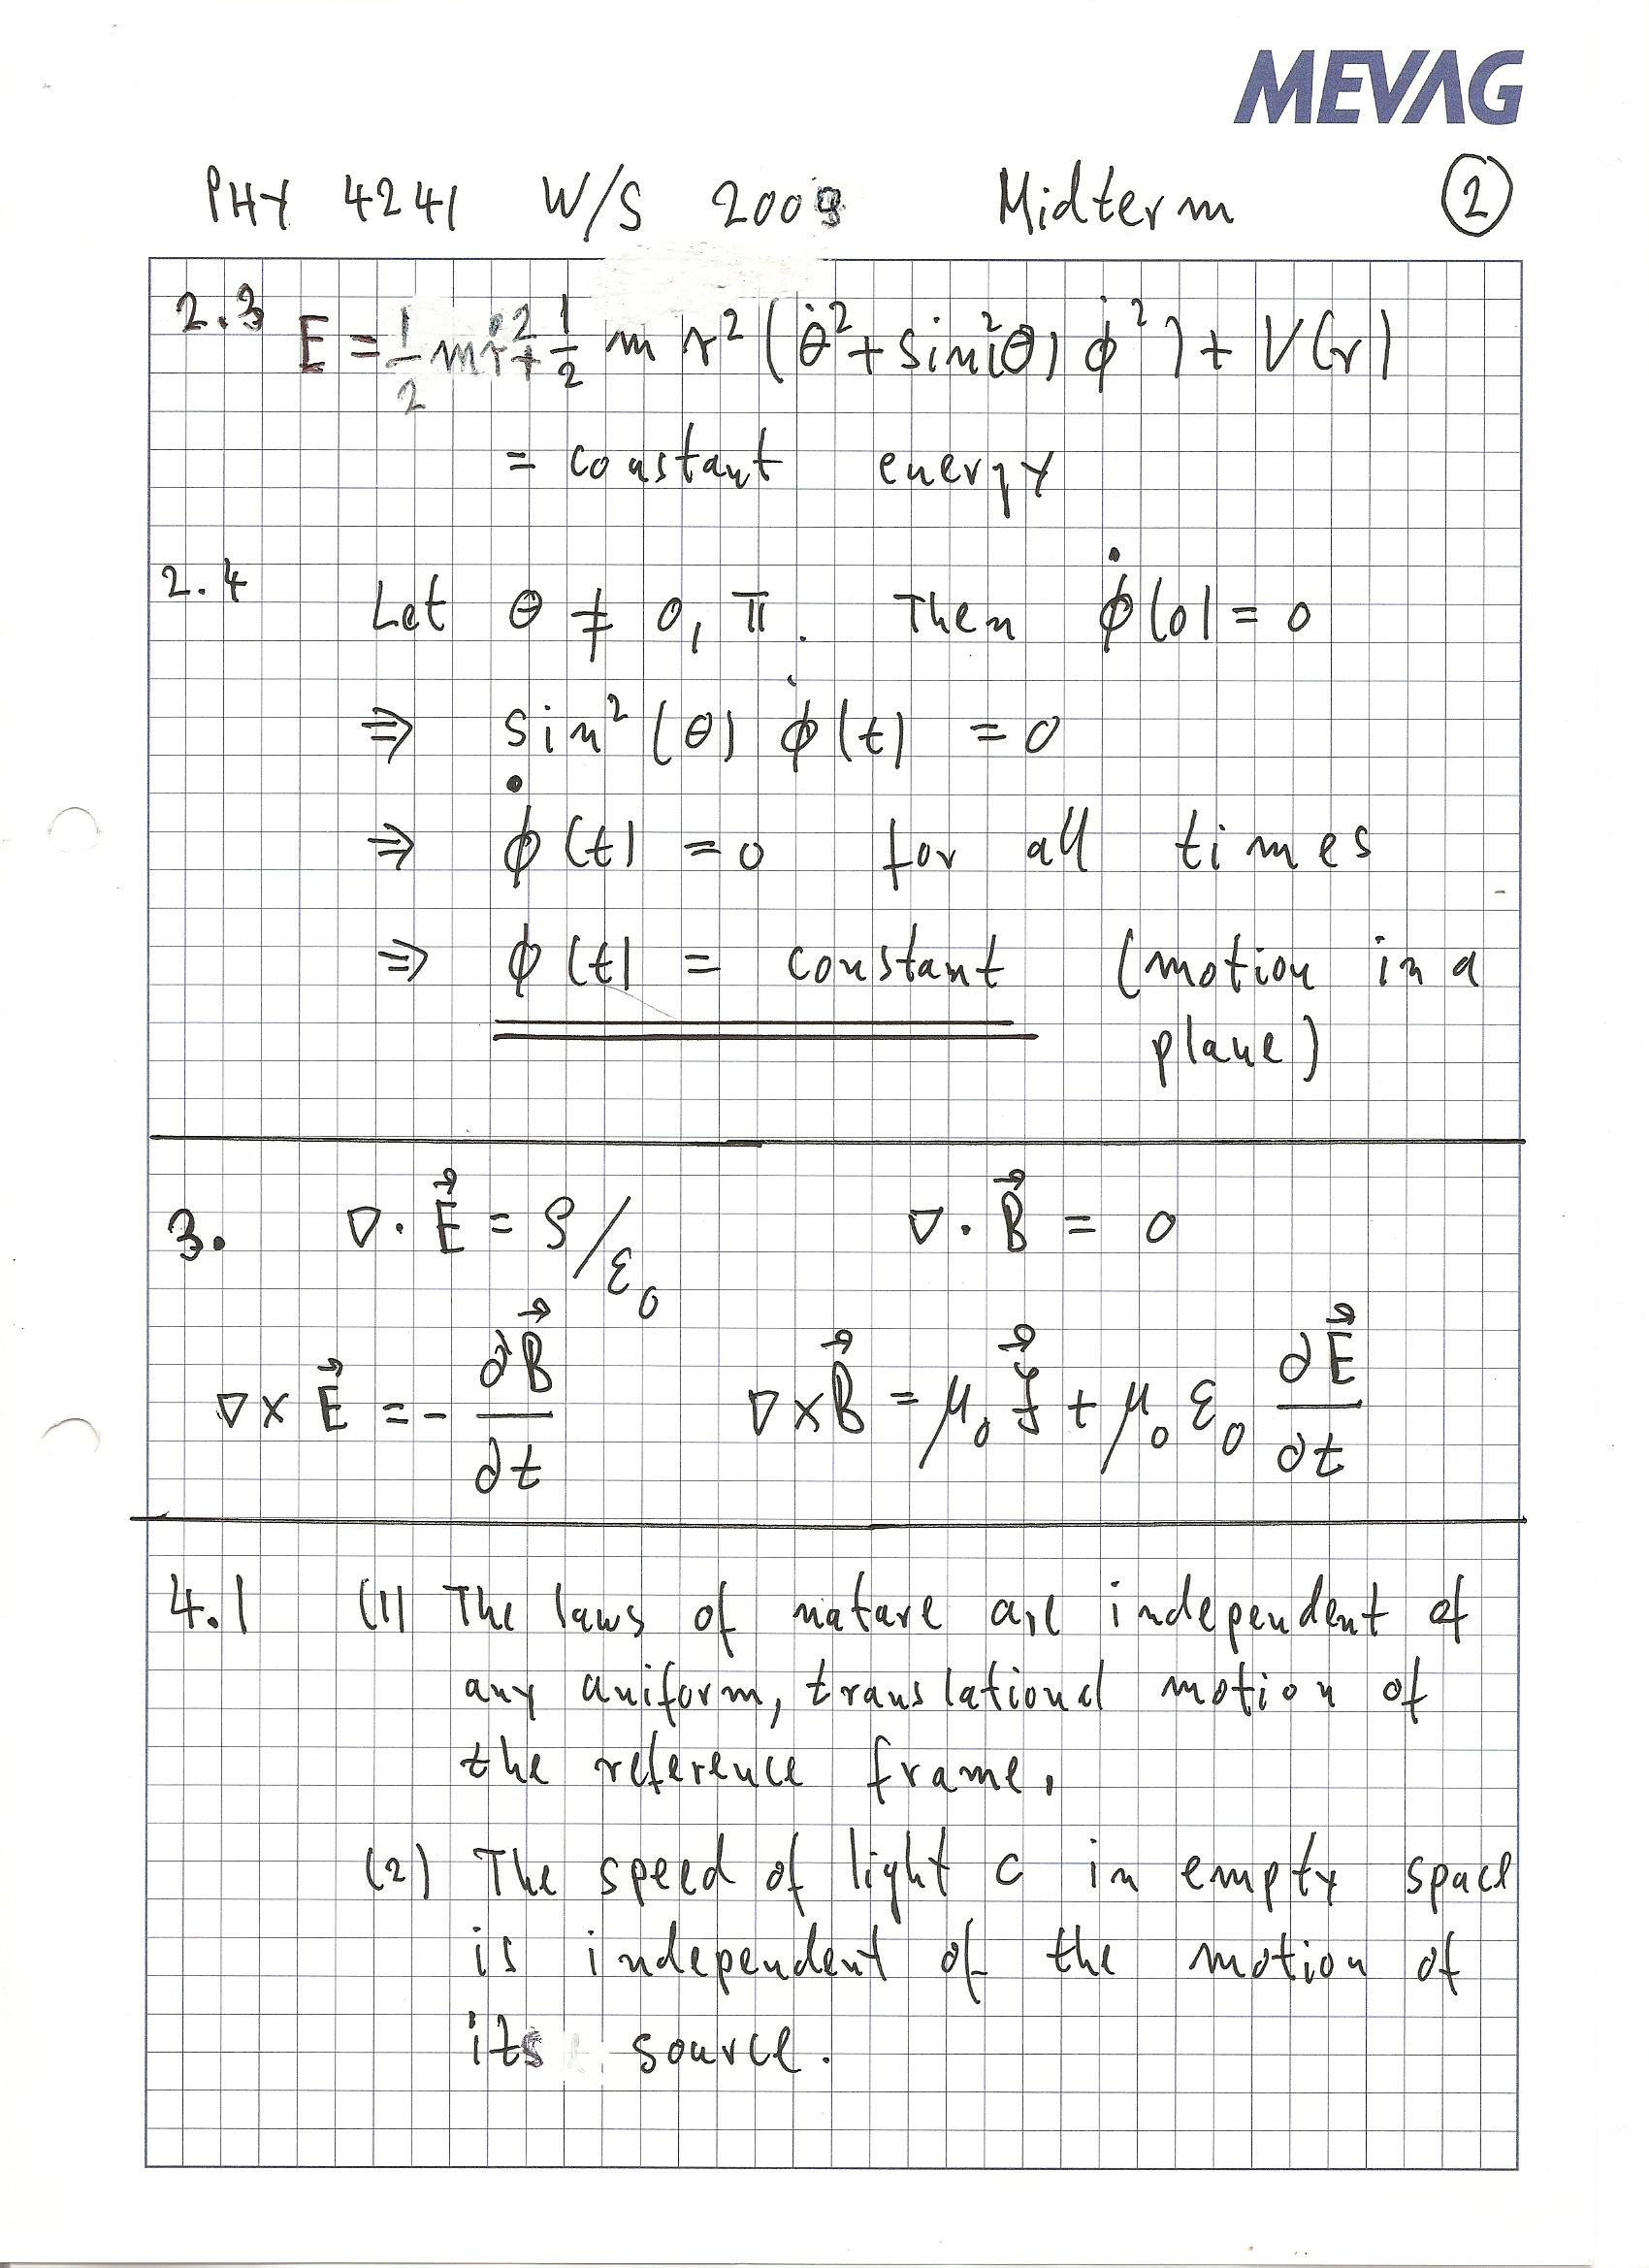 MEVAG
PHY 4241 W/S 2009 Midterm ②
2.3 E = 1/2 m ṙ² + 1/2 m r² (θ̇² + sin²(θ) φ̇²) + V(r)
= constant energy
2.4 Let θ ≠ 0, π. Then φ̇(0) = 0
⇒ sin²(θ) φ̇(t) = 0
⇒ φ̇(t) = 0 for all times
⇒ φ(t) = constant (motion in a
plane)
3. ∇· E⃗ = ρ/ε₀ ∇· B⃗ = 0
∇× E⃗ = - ∂B⃗/∂t ∇×B⃗ = μ₀ j⃗ + μ₀ ε₀ ∂E⃗/∂t
4.1 (1) The laws of nature are independent of
any uniform, translational motion of
the reference frame.
(2) The speed of light c in empty space
is independent of the motion of
its source.